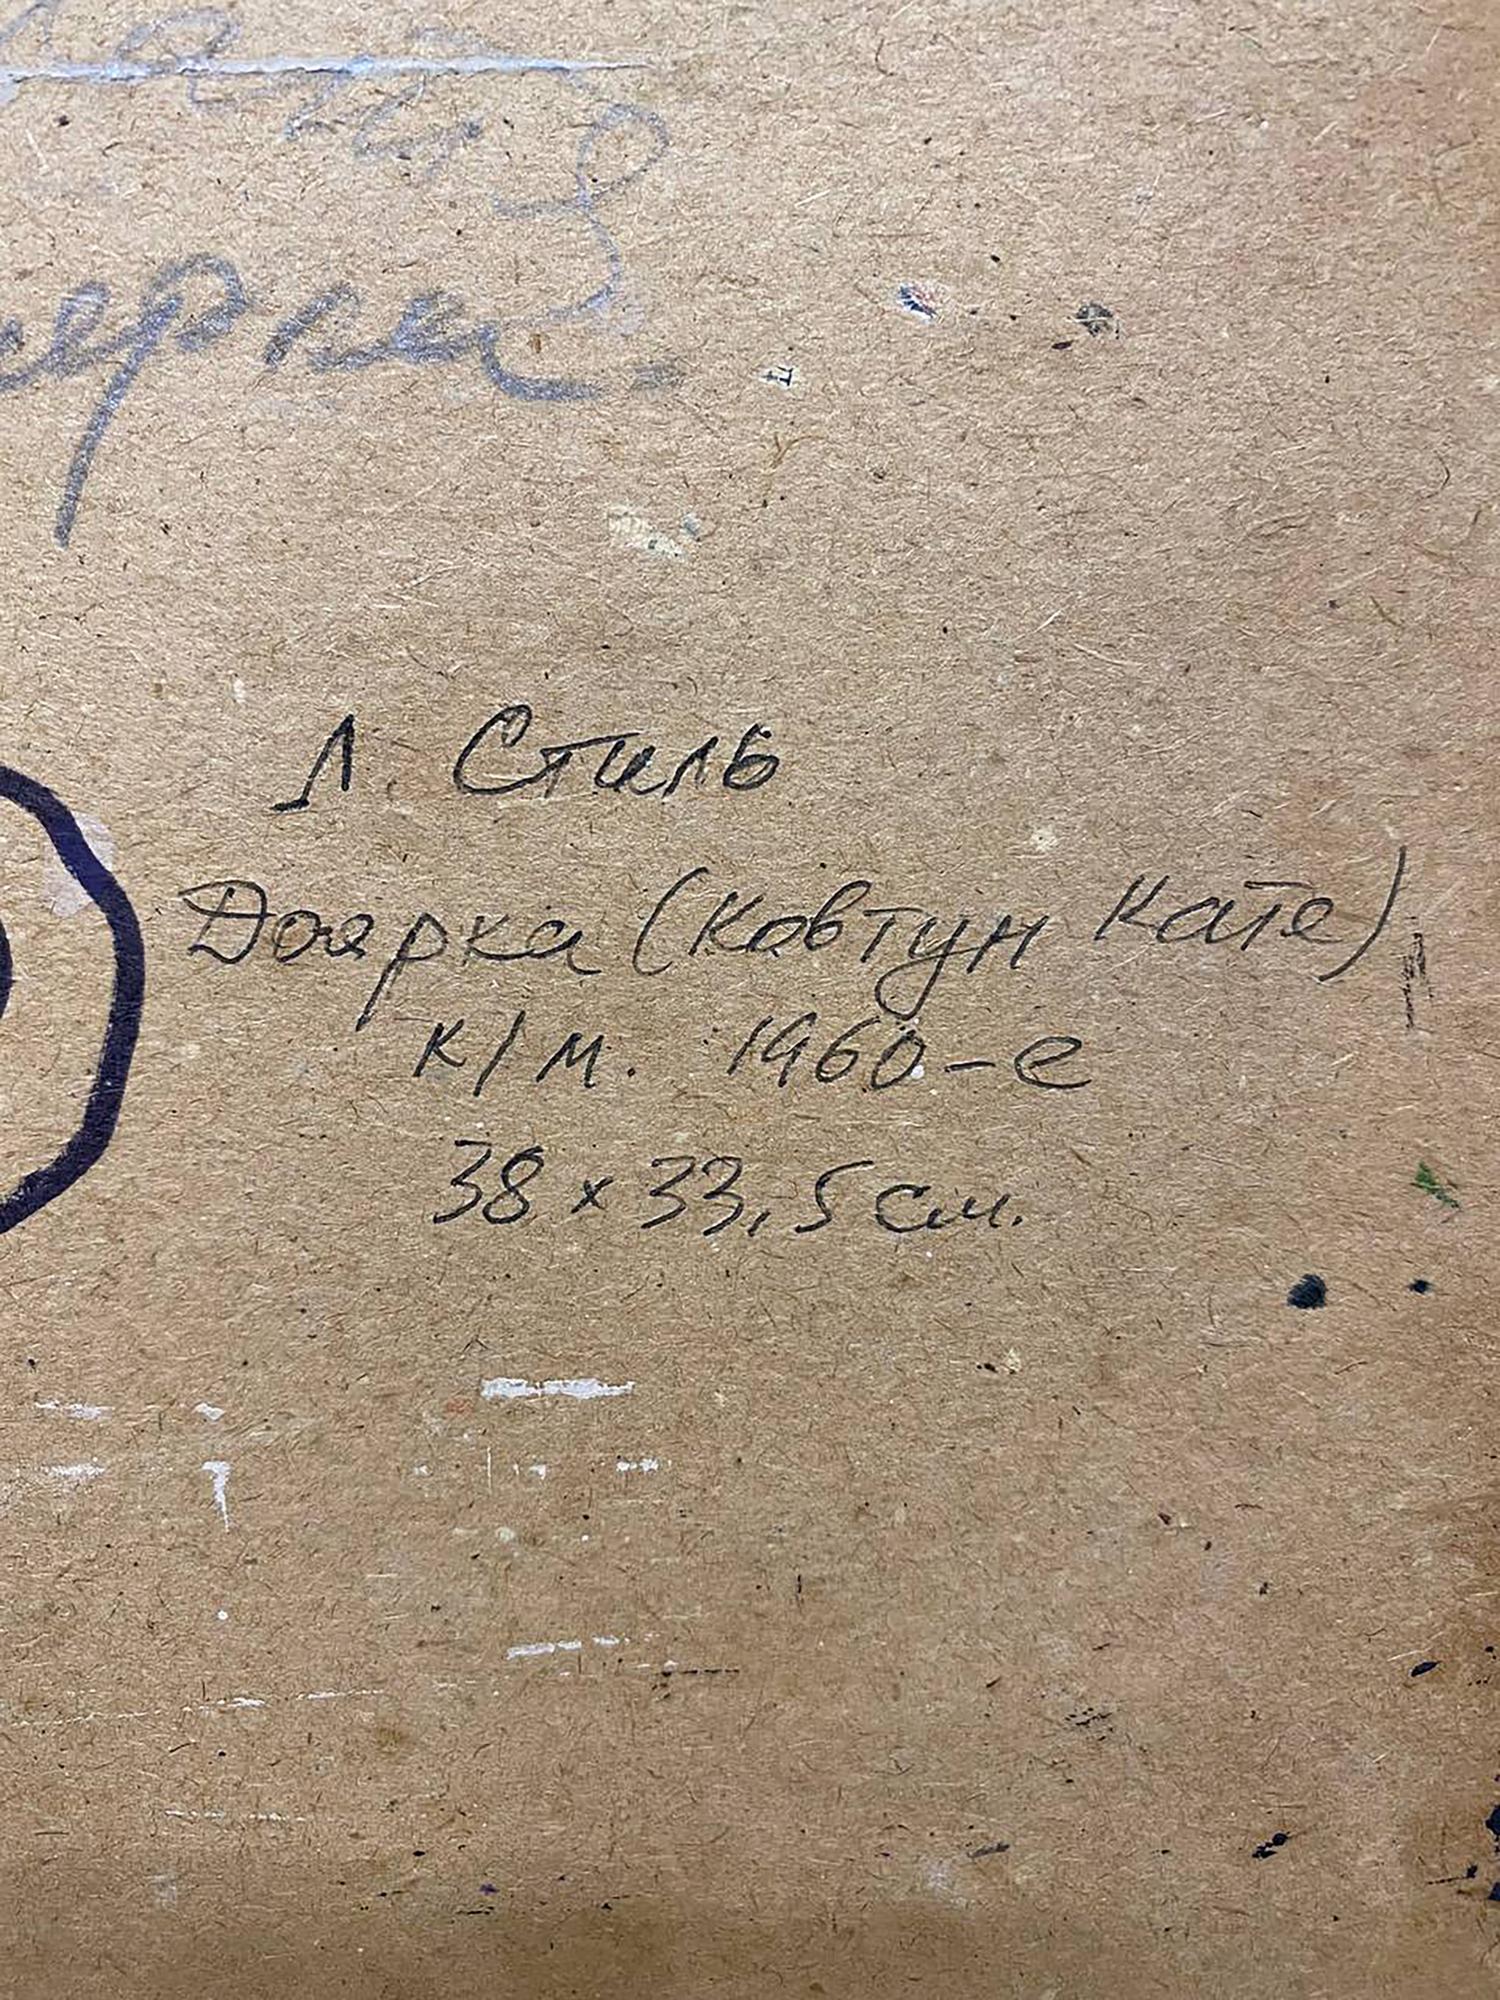 Л. Стиль
Доярка (Ковтун Катя)
к/м. 1960-е
38 x 33,5 см.